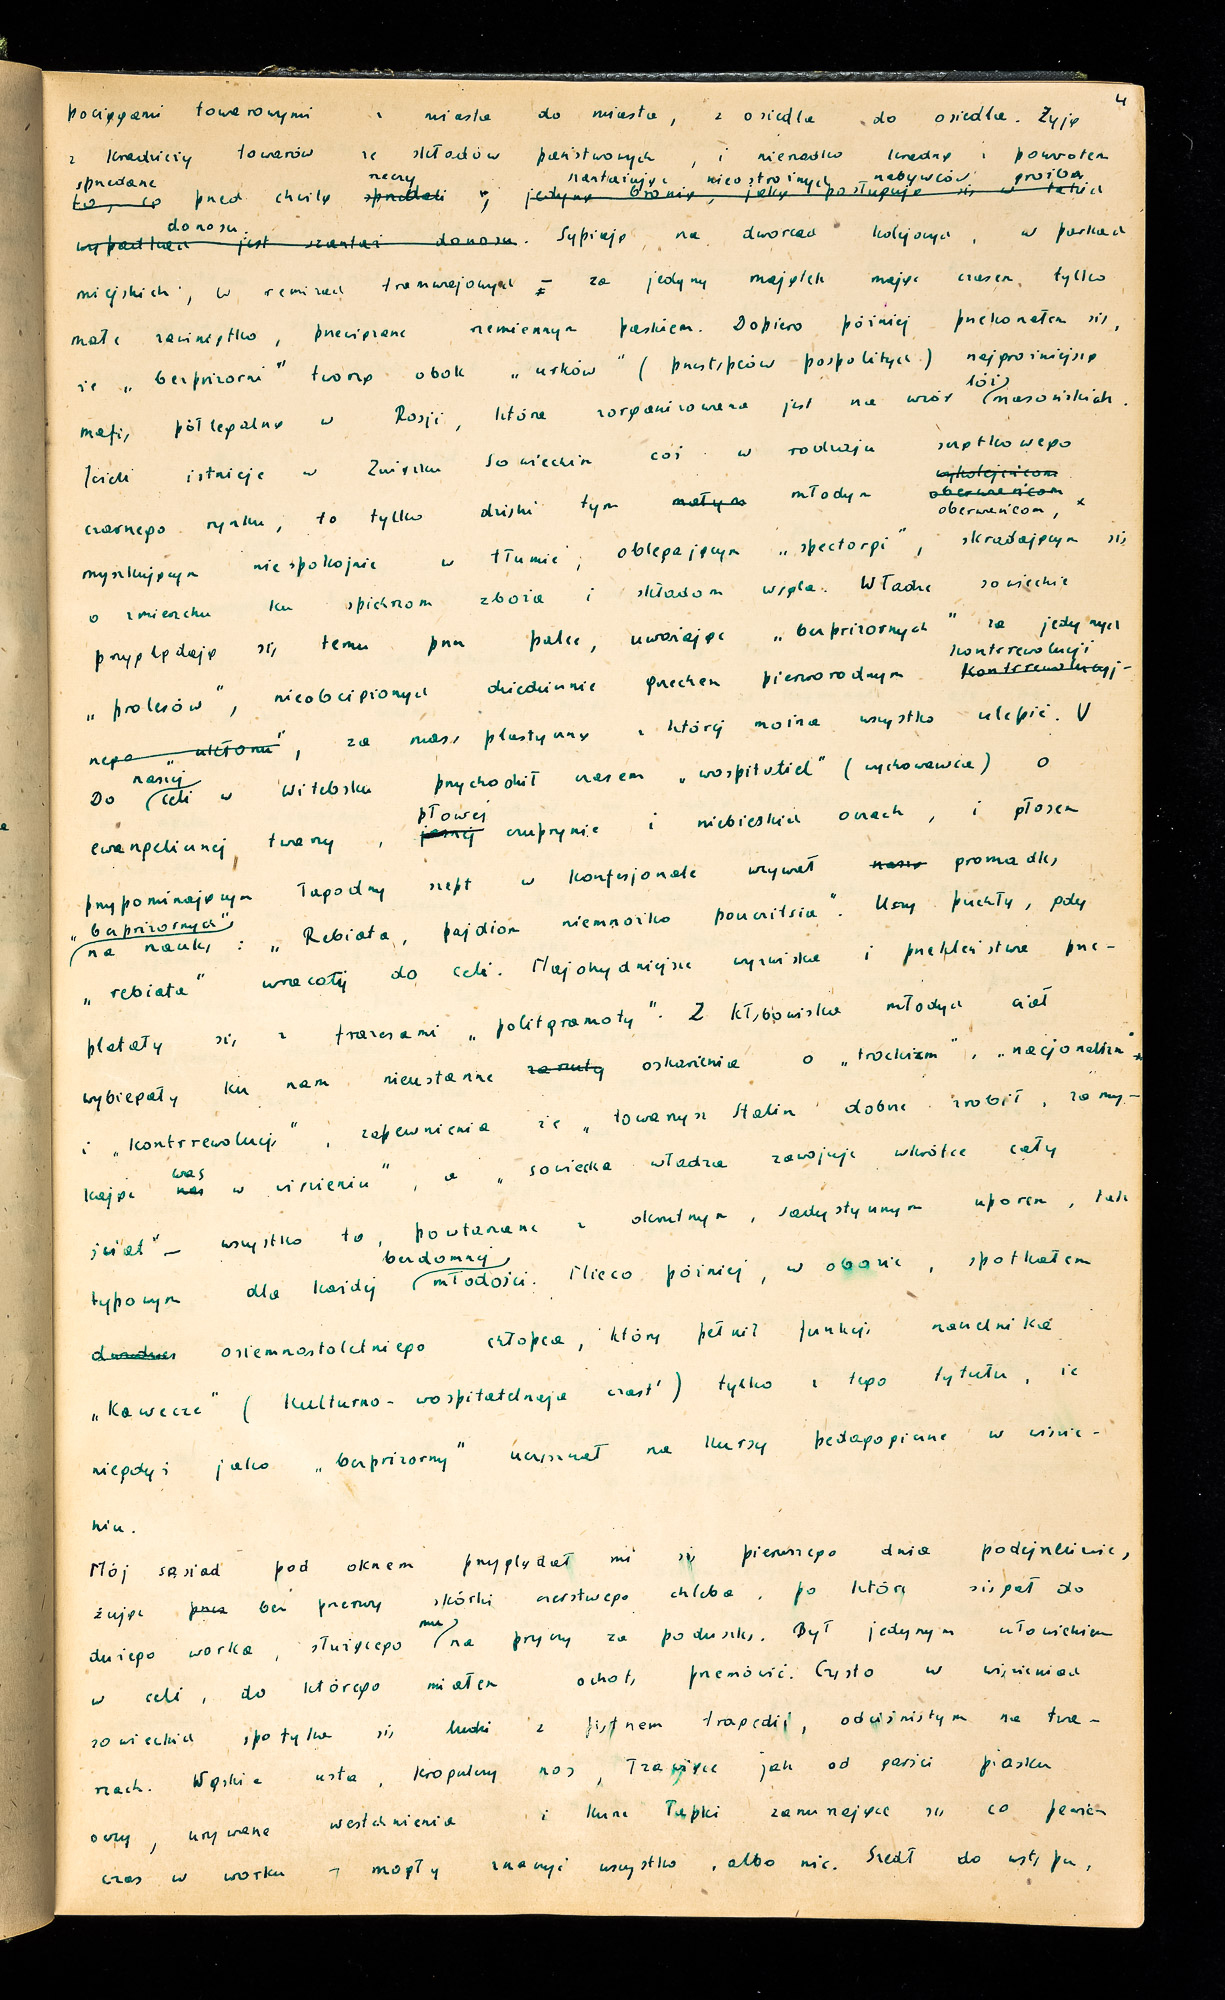 4
pociągami towarowymi z miasta do miasta, z osiedla do osiedla. Żyją
z kradzieży towarów ze składów państwowych, i nierzadko kradną z powrotem
sprzedane rzeczy szantażując nieostrożnych nabywców groźbą
to, co przed chwilą sprzedali ; jedyną bronią, jaką posługują się w takich
donosu.
wypadkach jest szantaż donosu. Sypiają na dworcach kolejowych, w parkach
miejskich, w remizach tramwajowych – za jedyny majątek mając czasem tylko
małe zawiniątko, przewiązane rzemiennym paskiem. Dopiero później przekonałem się,
że „bezprizorni" tworzą obok „urków" (przestępców pospolitych) najgroźniejszą
lóż
mafię półlegalną w Rosji, która zorganizowana jest na wzór masońskich.
Jeżeli istnieje w Związku Sowieckim coś w rodzaju szczątkowego
wykolejeńcom
czarnego rynku, to tylko dzięki tym małym młodym oberwańcom
oberwańcom,
myszkującym niespokojnie w tłumie, oblegającym „spectorgi", skradającym się
o zmierzchu ku spichrzom zboża i składom węgla. Władze sowieckie
przyglądają się temu przez palce, uważając „bezprizornych" za jedynych
kontrrewolucji
„prolesów", nieobciążonych dziedzicznie grzechem pierworodnym kontrrewolucyj-
nego „ukłonu", za masę plastyczną z której można wszystko ulepić. V
naszej
Do celi w Witebsku przychodził czasem „wospitatiel" (wychowawca) o
płowej
ewangelicznej twarzy, jasnej czuprynie i niebieskich oczach, i głosem
przypominającym łagodny szept w konfesjonale wzywał naszą gromadkę
„bezprizornych"
na naukę: „Rebiata, pajdiom niemnożko pouczitsia". Uszy puchły, gdy
„rebiata" wracały do celi. Najohydniejsze wyzwiska i przekleństwa prze-
platały się z frazesami „politgramoty". Z kłębowiska młodych ciał
wybiegały ku nam nieustanne zarzuty oskarżenia o „trockizm", „nacjonalizm"
i „kontrrewolucję", zapewnienia że „towarzysz Stalin dobrze zrobił, zamy-
was
kając nas w więzieniu", a „sowiecka władza zawojuje wkrótce cały
świat" – wszystko to, powtarzane z okrutnym, sadystycznym uporem, tak
bezdomnej
typowym dla każdej młodości. Nieco później, w obozie, spotkałem
osiemnastoletniego chłopca, który pełnił funkcję naczelnika
„Kawecze" (Kulturno-wospitatelnaja czast') tylko z tego tytułu, że
niegdyś jako „bezprizorny" uczęszczał na kursy pedagogiczne w więzie-
niu.
Mój sąsiad pod oknem przyglądał mi się pierwszego dnia podejrzliwie,
żując przez bez przerwy skórki czerstwego chleba, po które sięgał do
mu
dużego worka, służącego na pryczy za poduszkę. Był jedynym człowiekiem
w celi, do którego miałem ochotę przemówić. Często w więzieniach
sowieckich spotyka się ludzi z piętnem tragedii, odciśniętym na twa-
rzach. Wąskie usta, kropulny nos, łzawiące jak od garści piasku
oczy, urywane westchnienia i kurze łapki zanurzające się co pewien
czas w worku – mogły znaczyć wszystko, albo nic. Szedł do ustępu,